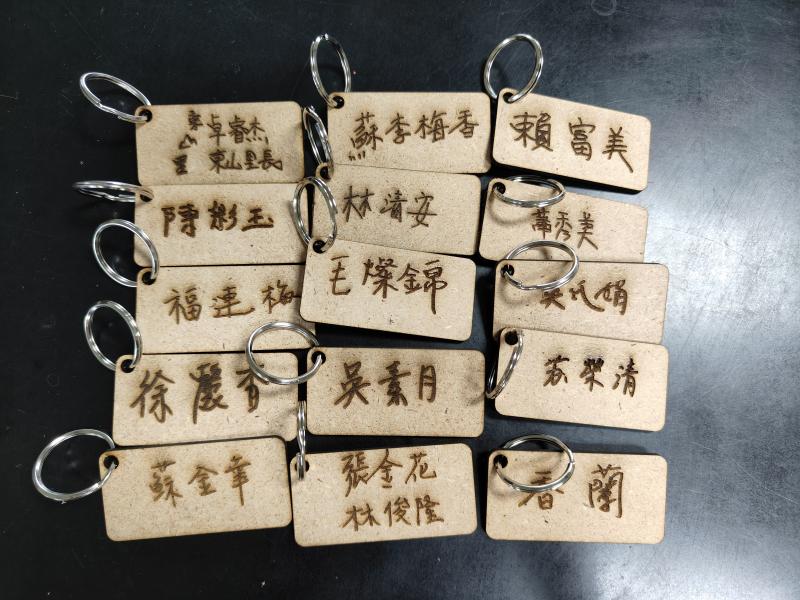 東山里
卓睿杰
東山里長
蘇李梅香
賴富美
陳彩玉
林清安
秀美
福連梅
毛燦錦
吳氏娟
徐麗香
吳素月
清
蘇金幸
張金花
林俊隆
香蘭